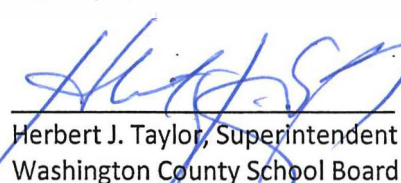 Herbert J. Taylor, Superintendent
Washington County School Board